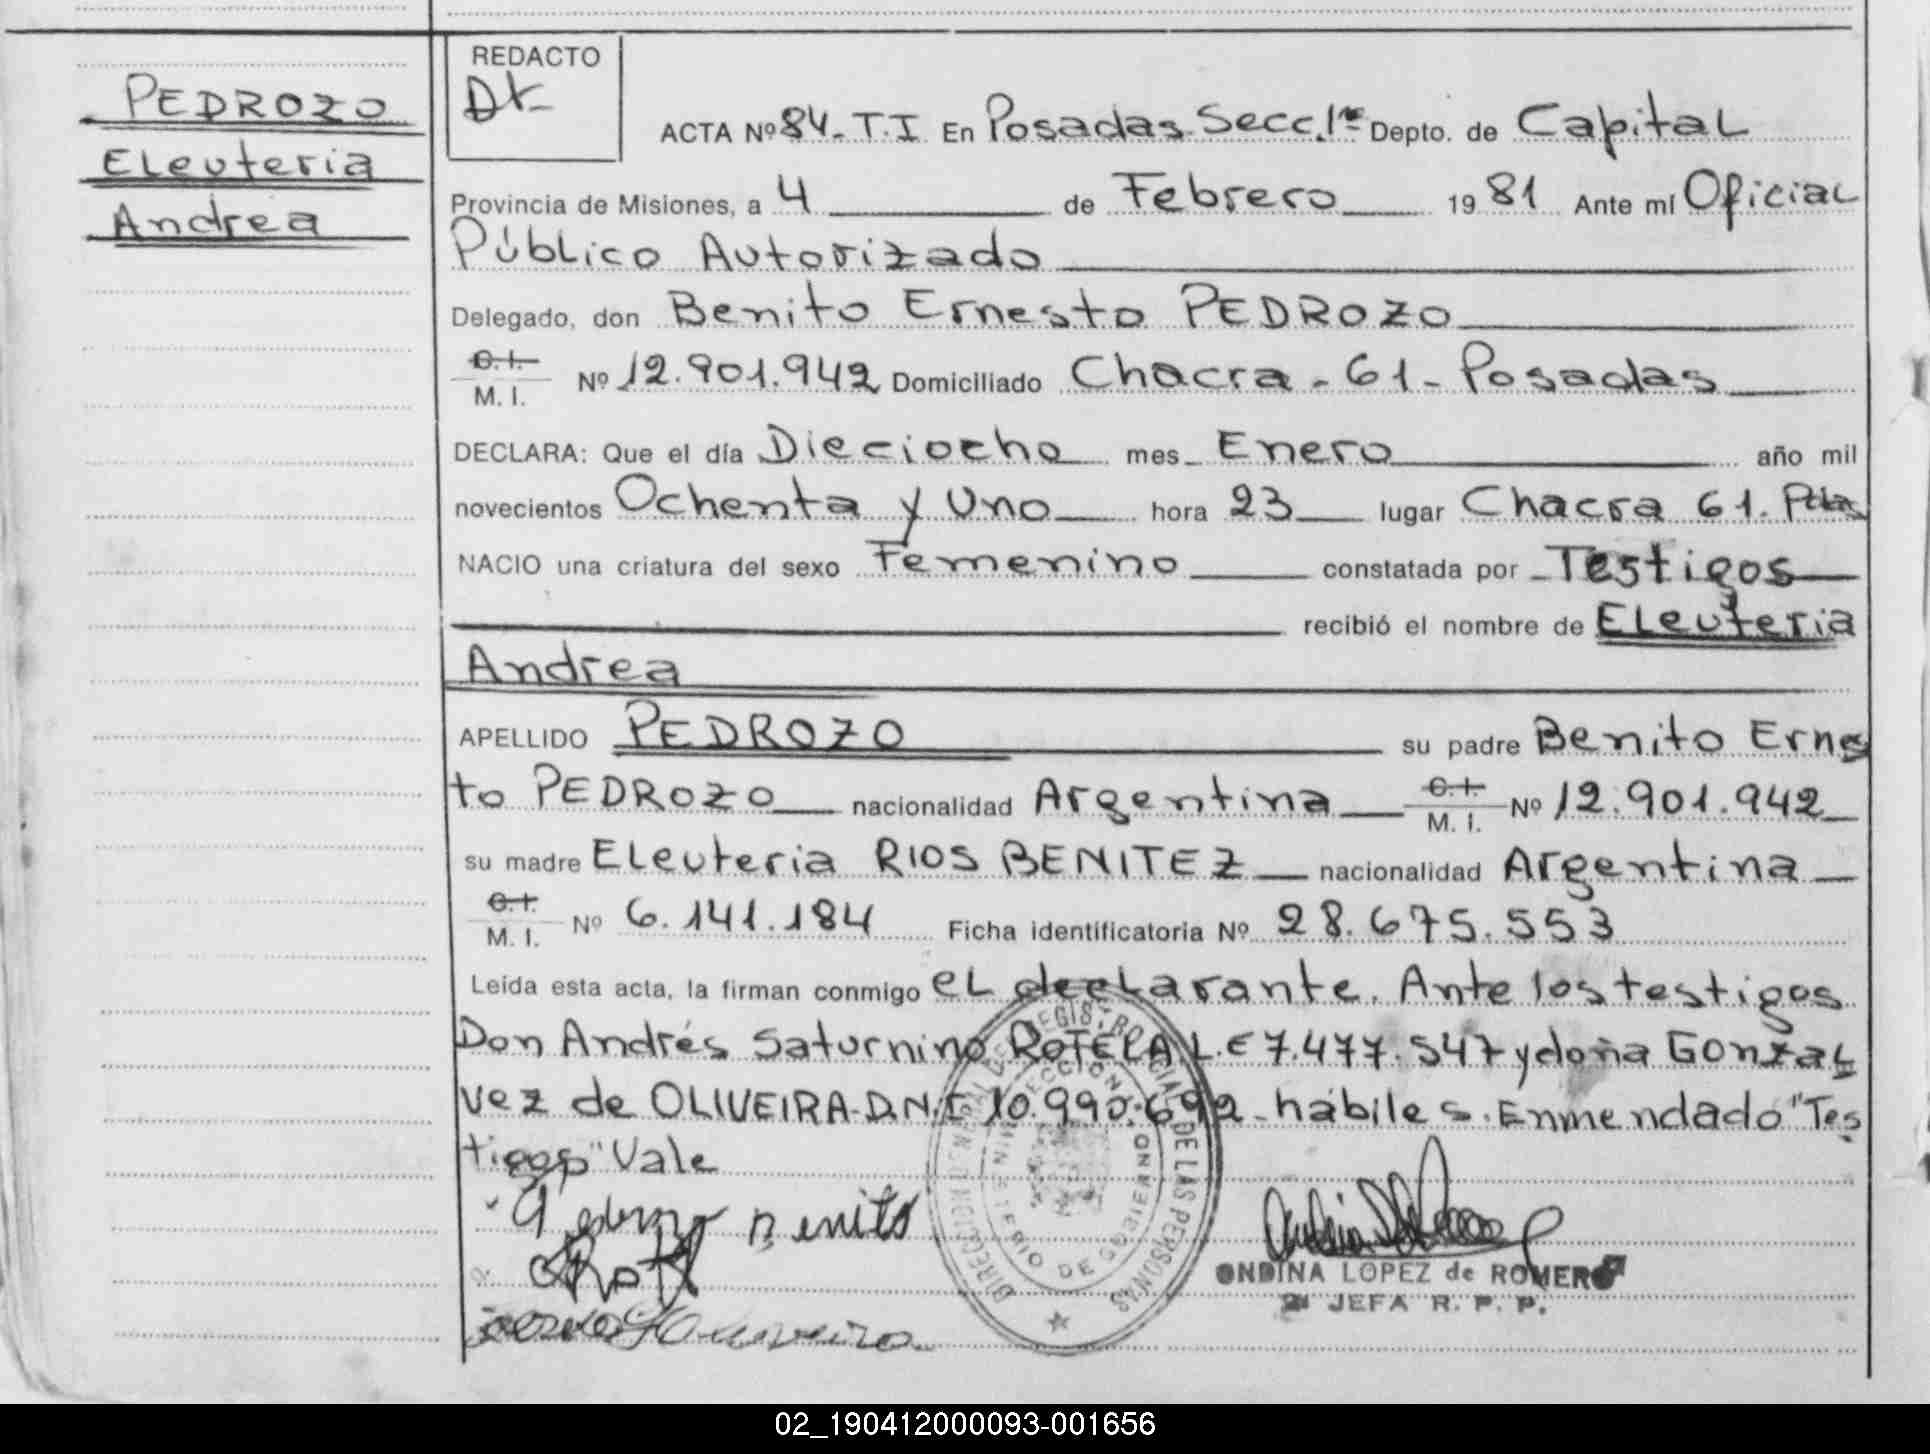 PEDROZO
Eleuteria
Andrea
REDACTO
ACTA Nº 84. T.I En Posadas. Secc. 1ra Depto. de Capital
Provincia de Misiones, a 4 de Febrero 1981 Ante mí Oficial
Público Autorizado
Delegado, don Benito Ernesto PEDROZO
C.I.
M. I. Nº 12.901.942 Domiciliado Chacra - 61 - Posadas
DECLARA: Que el día Dieciocho mes Enero año mil
novecientos Ochenta y Uno hora 23 lugar Chacra 61. Pdas
NACIO una criatura del sexo Femenino constatada por Testigos
recibió el nombre de Eleuteria
Andrea
APELLIDO PEDROZO su padre Benito Ernes
to PEDROZO nacionalidad Argentina C.I. M. I. Nº 12.901.942
su madre Eleuteria RIOS BENITEZ nacionalidad Argentina
C.I.
M. I. Nº 6.141.184 Ficha identificatoria Nº 28.675.553
Leída esta acta, la firman conmigo el declarante. Ante los testigos
Don Andrés Saturnino ROTELA L.E 7.477.547 y doña Gonzal
vez de OLIVEIRA - D.N.I 10.990.692 - hábiles. Enmendado "Tes
tigos" Vale
Pedrozo Benito
DIRECCION GENERAL DEL REGISTRO CIAL DE LAS PERSONAS
MINISTERIO DE GOBIERNO
ONDINA LOPEZ de ROMERO
JEFA R. P. P.
02_190412000093-001656